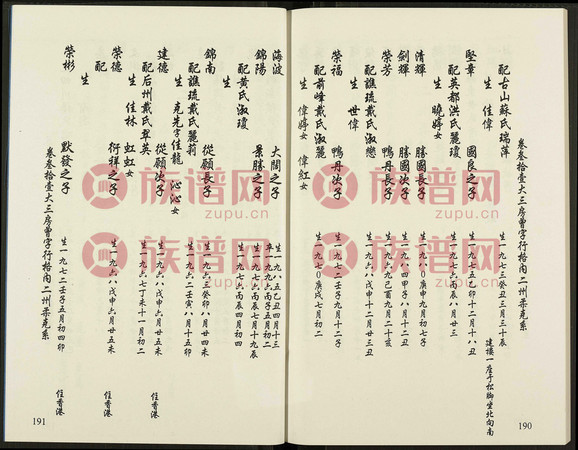 卷叁拾壹大三房曾字行格內二州榮克系
建樓一座于松腳坐北向南
配古山蘇氏瑞萍 生一九七三癸丑三月三十辰
生 佳偉
堅章 國良之子 生一九七五乙卯十二月十八丑
配英都洪氏瑰瓊 生一九七六丙辰八月廿三
生 曉婷女
清輝 勝國長子 生一九八〇庚申九月初七子
劍輝 勝國次子 生一九八四甲子八月十二丑
榮芳 鴨丹長子 生一九六九己酉九月二十亥
配譙琉戴氏淑戀 生一九六八戊申十二月廿三丑
生 世偉
榮福 鴨丹次子 生一九七二壬子九月十二子
配前峰戴氏淑麗 生一九七〇庚戌七月初二
生 偉婷女 偉紅女
190
海波 大閙之子 生一九八五乙丑四月十三
卒一九九六丙子五月初二
錦陽 景勝之子 生一九七六丙辰七月十九辰
配黃氏淑瓊 生一九七六丙辰四月初四
生
錦南 從願長子 生一九六三癸卯八月廿四未
配譙琉戴氏麗莉 生一九六二壬寅八月十五卯
生 克先字佳龍 沁沁女
建德 從願次子 生一九六八戊申六月廿五未 住香港
配后州戴氏翠英 生一九六七丁未十一月初二
生 佳林 虹虹女
榮德 衍祥之子 生一九六八戊申六月廿五未 住香港
配
生
榮彬 默發之子 生一九七二壬子五月初四卯 住香港
卷叁拾壹大三房曾字行格內二州榮克系
191
族谱网
zupu.cn
族谱网
zupu.cn
族谱网
zupu.cn
族谱网
zupu.cn